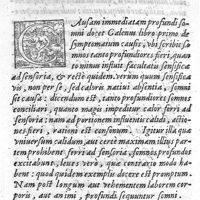 CAusam immediatam profundi so-
mni docet Galenus libro primo de
simptomatum causis, vbi scribit so
mnos tanto profundiores fieri, quan
to minus influit facultatis sensificæ
ad sensoria, & rectè quidem. verum quum sensifica
vis, non per se, sed caloris nativi absentia, somni
sit causa: dicendum est, tanto profundiores somnos
conciliari, quanto magis impeditur calor ferri ad
sensoria: nam ad portionem influentis calidi, actio-
nes fieri, rationi est consonum. Igitur illa quæ
vniversum calidum, aut certè maximam illius par-
tem prohibent ferri ad sensoria, somnos profundos
excitabunt, leues verò, quæ contrario modo ha-
bent: quod quidem exemplis docere est promptum.
Nam post longum aut vehementem laborem cor-
poris, aut animi, profundi sequuntur somni.